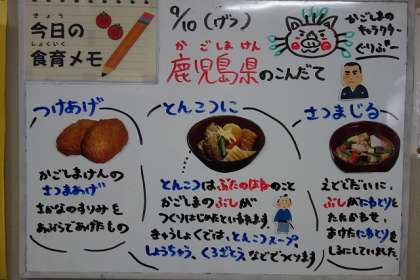 きょう
今日の
しょくいく
食育メモ
9/10(げつ)
かごしまけん
鹿児島県のこんだて
かごしまの
キャラクター
ぐりぶー
つけあげ
かごしまけんの
さつまあげ
さかなのすりみを
あぶらであげたもの
とんこつに
とんこつはぶたのほねのこと
かごしまのぶしが
つくりはじめたといわれます。
きゅうしょくでは、とんこつスープ、
しょうちゅう、くろざとうなどでつくります
さつまじる
えどじだいに、
ぶしがにわとりを
たたかわせ、
まけたにわとりを
しるにしていました